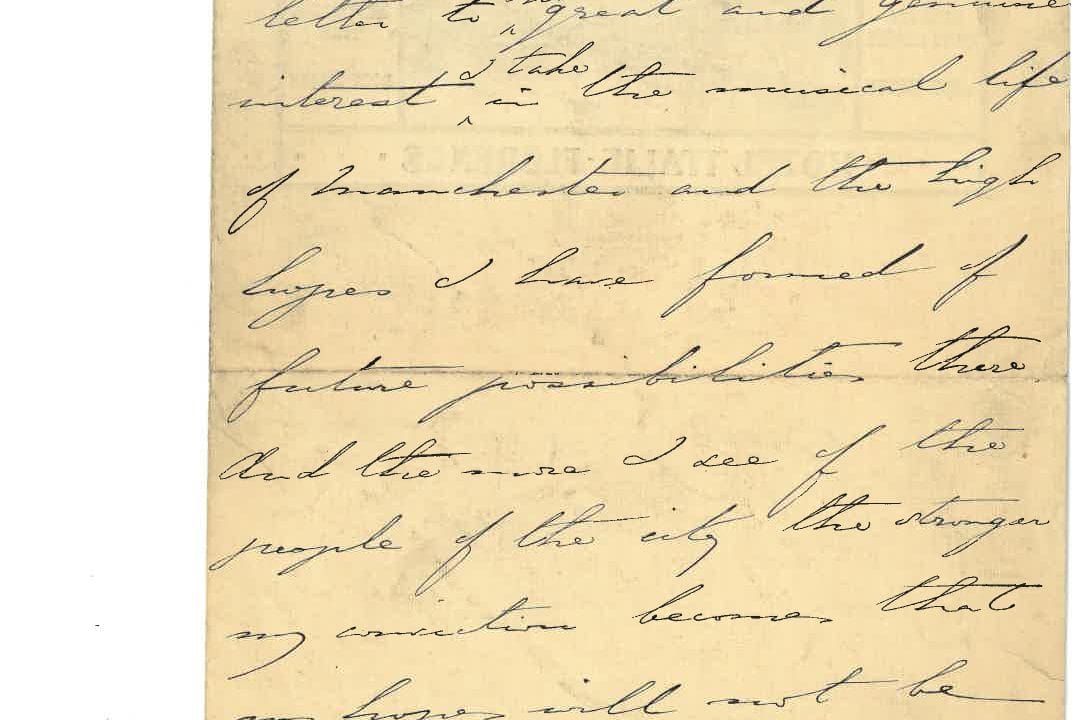 letter to great and genuine
I take
interest in the musical life
of Manchester and the high
hopes I have formed of
future possibilities there.
And the more I see of the
people of the city the stronger
my conviction becomes that
my hopes will not be